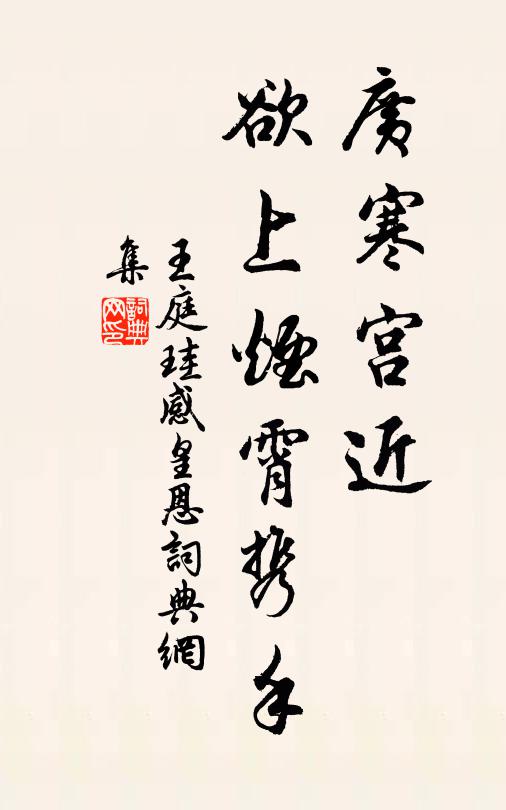 廣寒宮近
欲上煙霄携手
王庭珪感皇恩詞典網
集
詞典
网印